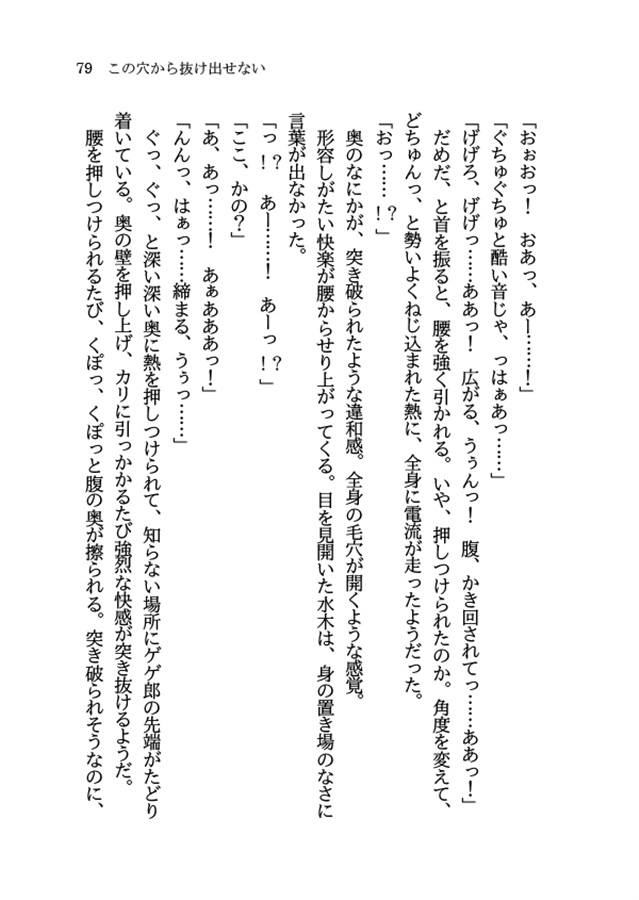 79　この穴から抜け出せない
「おぉおっ！　おあっ、あー……！」
「ぐちゅぐちゅと酷い音じゃ、っはぁあっ……」
「げげろ、げげっ……ああっ！　広がる、うぅんっ！　腹、かき回されてっ……ああっ！」
だめだ、と首を振ると、腰を強く引かれる。いや、押しつけられたのか。角度を変えて、
どちゅんっ、と勢いよくねじ込まれた熱に、全身に電流が走ったようだった。
「おっ……！？」
奥のなにかが、突き破られたような違和感。全身の毛穴が開くような感覚。
形容しがたい快楽が腰からせり上がってくる。目を見開いた水木は、身の置き場のなさに
言葉が出なかった。
「っ！？　あー……！　あーっ！？」
「ここ、かの？」
「あ、あっ……！　あぁあああっ！」
「んんっ、はぁっ……締まる、うぅっ……」
ぐっ、ぐっ、と深い深い奥に熱を押しつけられて、知らない場所にゲゲ郎の先端がたどり
着いている。奥の壁を押し上げ、カリに引っかかるたび強烈な快感が突き抜けるようだ。
腰を押しつけられるたび、くぽっ、くぽっと腹の奥が擦られる。突き破られそうなのに、